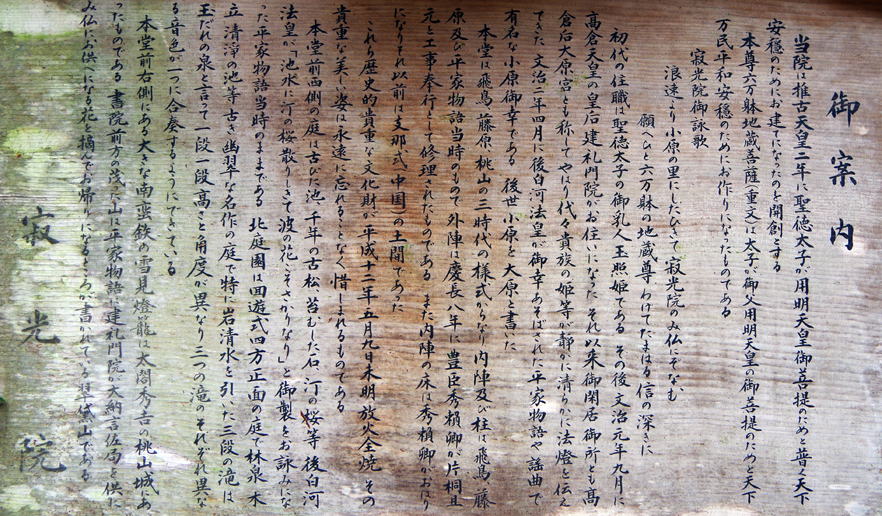 御案内
当院は推古天皇二年に聖徳太子が用明天皇御菩提のためと普く天下
安穏のためにお建てになったのを開創とする
本尊六万躰地蔵菩薩(重文)は太子が御父用明天皇の御菩提のためと天下
万民平和安穏のためにお作りになったものである
寂光院御詠歌
浪速より小原の里にしたんきて寂光院のみ仏にそなむ
願へひと六万躰の地蔵尊わけてたまはる信の深きに
初代の住職は聖徳太子の御乳人玉照姫である その後文治元年九月に
高倉天皇の皇后建礼門院がお住いになった それ以来御閑居御所とも高
倉后大原宮とも称してやはり代々貴族の姫等が静かに清らかに法燈を伝え
てきた 文治二年四月に後白河法皇が御幸あそばされた平家物語や謡曲で
有名な小原御幸である 後世小原を大原と書いた
本堂は飛鳥 藤原 桃山の三時代の様式からなり 内陣及び柱は飛鳥 藤
原及び平家物語当時のもので外陣は慶長八年に豊臣秀頼卿が片桐且
元を工事奉行として修理されたものである また内陣の床は秀頼卿がおはり
になりそれ以前は支那式(中国)の土間であった
これら歴史的貴重な文化財が平成十二年五月九日未明放火全焼 その
貴重な美しい姿は永遠に忘れることなく惜しまれるものである
本堂前西側の庭は古びた池 千年の古松 苔むした石 汀の桜等 後白河
法皇が「池水に汀の桜散りしきて波の花こそさかりなり」と御製をお詠みにな
った平家物語当時のままである 北庭園は回遊式四方正面の庭で林泉 木
立 清浄の池等 古き幽翠な名作の庭で特に岩清水を引いた三段の滝は
玉だれの泉と言って一段一段高さと角度が異なり三つの滝のそれぞれ異な
る音色が一つに合奏するようにできている
本堂前右側にある大きな南蛮鉄の雪見燈籠は太閤秀吉の桃山城にあ
ったものである 書院前方の茂った山は平家物語に建礼門院が大納言佐局と供に
み仏にお供になる花を摘んでお帰りになるところが書かれている翠黛山である
寂光院